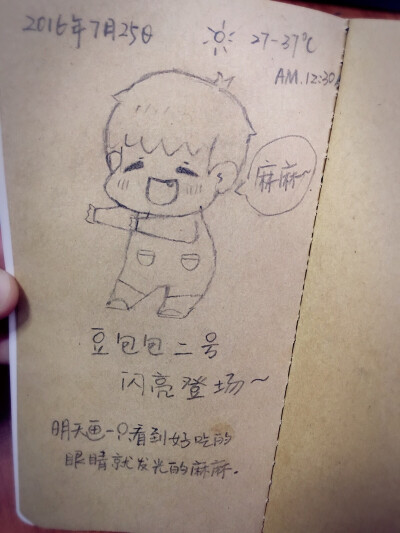 2016年7月25日 27-37℃
AM.12:30
麻麻~
豆包包二号
闪亮登场~
明天画一只看到好吃的
眼睛就发光的麻麻.